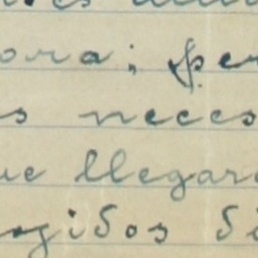 ora; per
s neces
ue llegara
ogidos si